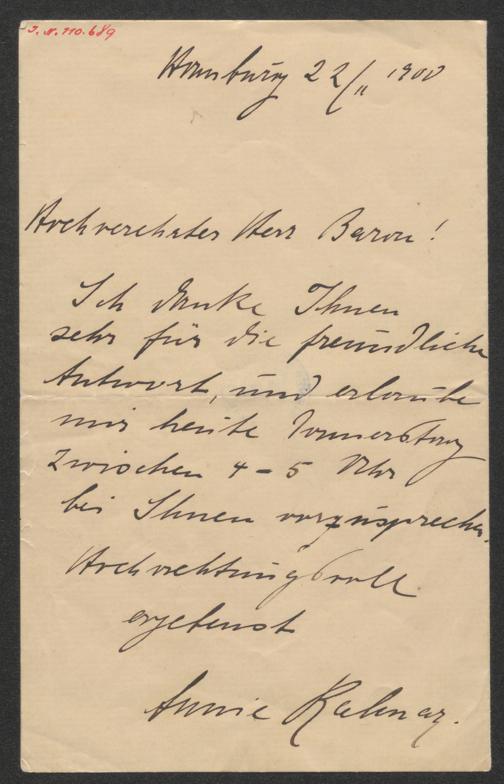 J. N. 110.689
Hamburg 22/11 1900
Hochverehrter Herr Baron!
Ich danke Ihnen
sehr für die freundliche
Antwort, und erlaube
mir heute Donnerstag
Zwischen 4 - 5 Uhr
bei Ihnen vorzusprechen.
Hochachtungsvoll
ergebenst
Annie Kalmar.